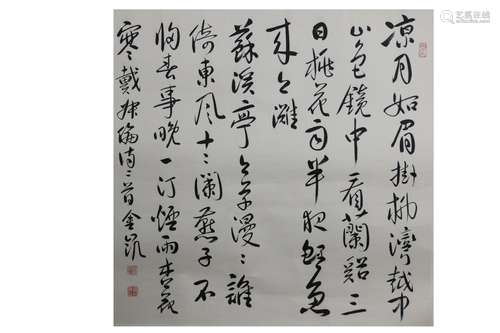 凉月如眉掛柳灣越中
山色鏡中看蘭谿三
日桃花雨半夜鯉魚
来上灘
蘇溪亭上草漫漫誰
倚東風十二闌燕子不
歸春事晚一汀煙雨杏花
寒戴叔倫詩二首金凱
易拍全球